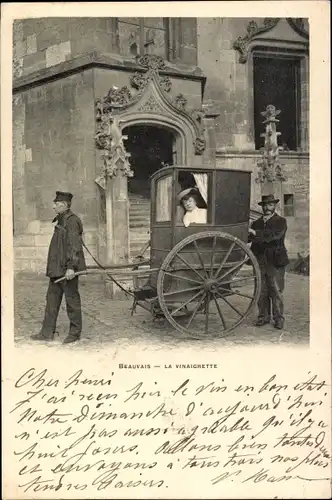 BEAUVAIS — LA VINAIGRETTE
Cher henri
J'ai reçu hier le vin en bon état
Notre Dimanche d'aujourd'hui
n'est pas aussi agréable qu'il y a
huit jours. Allons bien tendres
et envoyons à tous trois nos plus
tendres baisers.